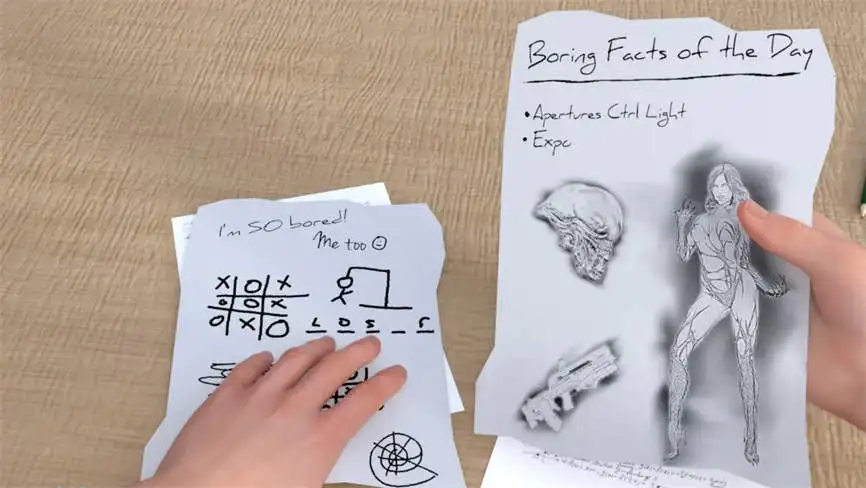 I'm SO bored!
Me too
X O X
O O X
O X O
L O S _ r
Boring Facts of the Day
• Apertures Ctrl Light
• Expo